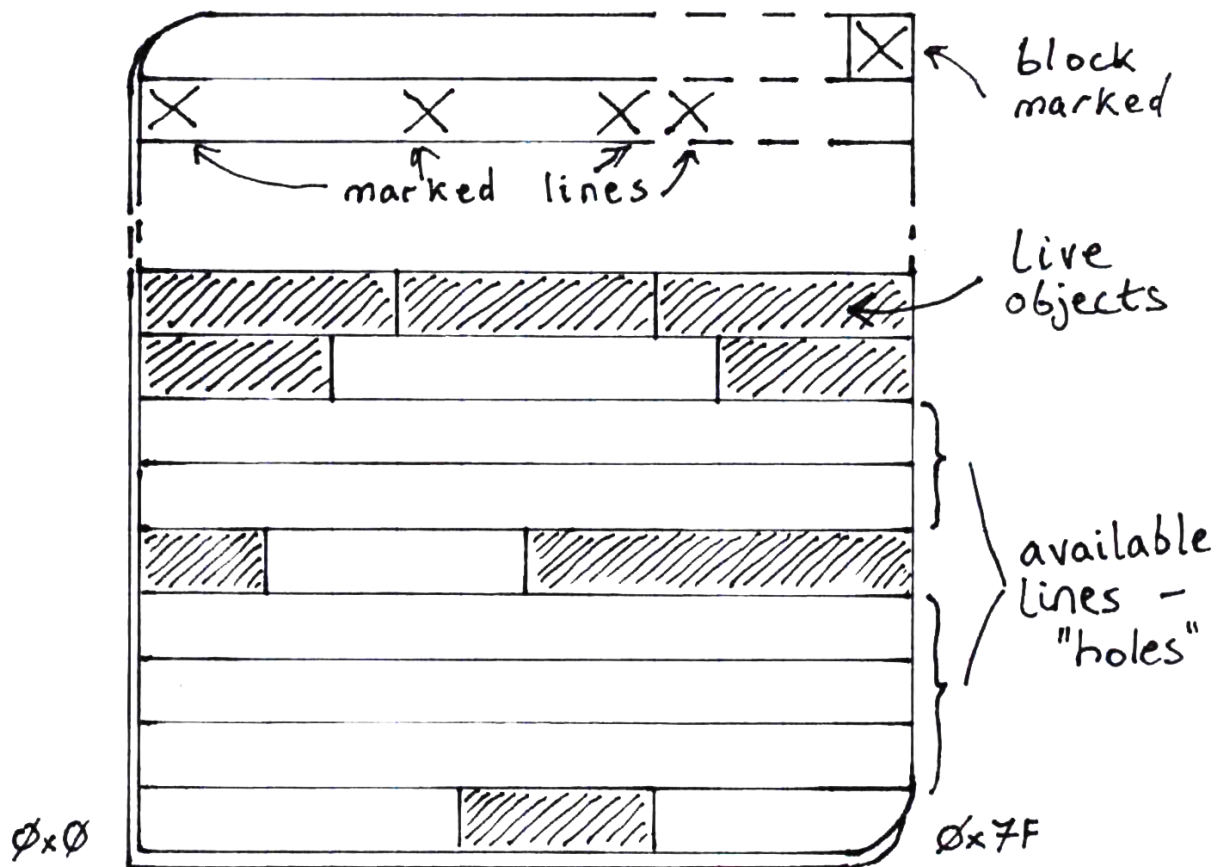 block
marked
marked lines
live
objects
available
lines –
"holes"
0x0
0x7F